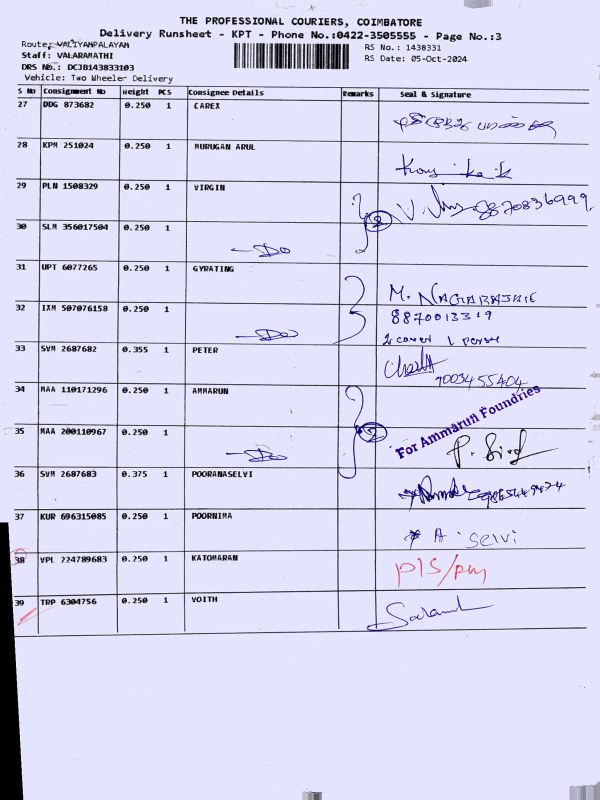 THE PROFESSIONAL COURIERS, COIMBATORE
Delivery Runsheet - KPT - Phone No.:0422-3505555 - Page No.:3
Route: VALIYAMPALAYAM
RS No.: 1438331
Staff: VALARAMATHI
RS Date: 05-Oct-2024
DRS No.: DCJB143833103
Vehicle: Two Wheeler Delivery
S No Consignment No Weight PCS Consignee Details Remarks Seal & Signature
27 DDG 873682 0.250 1 CAREX
28 KPM 251024 0.250 1 MURUGAN ARUL
29 PLN 1508329 0.250 1 VIRGIN 8870836999
30 SLM 356017504 0.250 1 —Do 2
31 UPT 6077265 0.250 1 GYRATING M. NAGARAJ
32 IXM 507076158 0.250 1 —Do 8870013319
2 cover 1 person
33 SVM 2687682 0.355 1 PETER
9003455404
34 MAA 110171296 0.250 1 AMMARUN
For Ammarun Foundries
35 MAA 200110967 0.250 1 —Do 2
36 SVM 2687683 0.375 1 POORANASELVI
37 KUR 696315085 0.250 1 POORNIMA A. selvi
38 VPL 224789683 0.250 1 KATOMARAN PLS/pm
39 TRP 6304756 0.250 1 VOITH